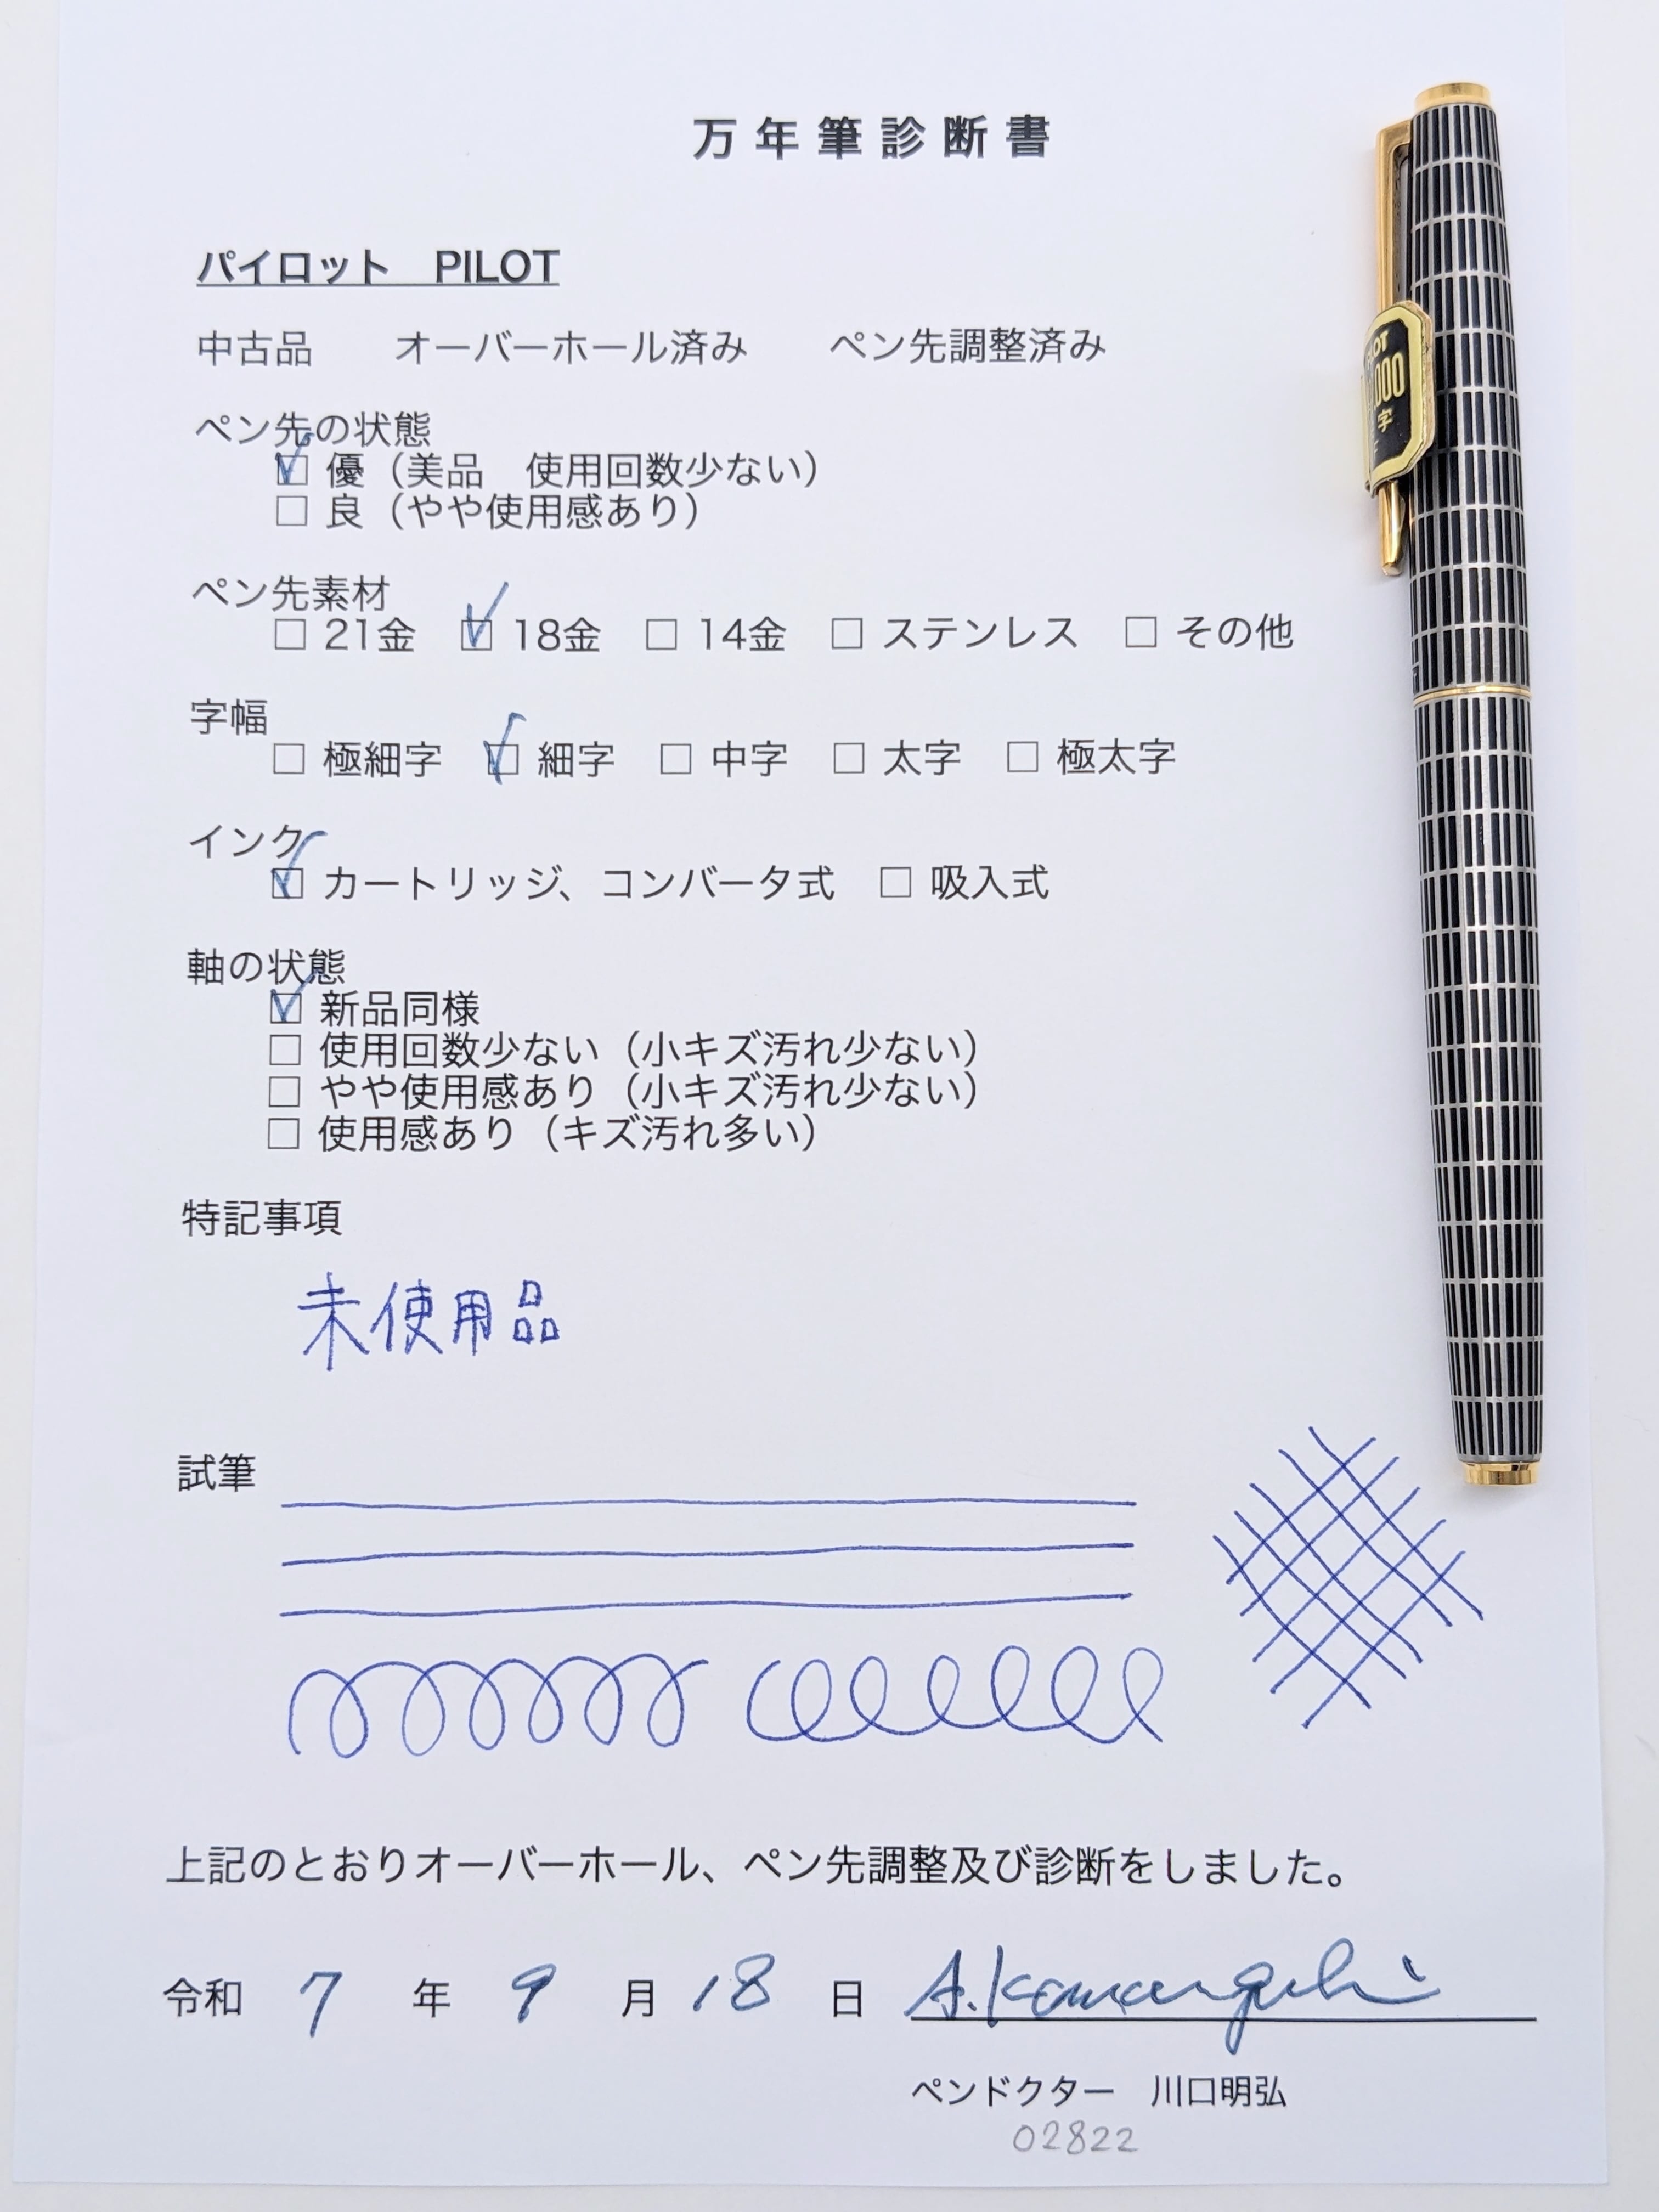 万年筆診断書
パイロット　PILOT
中古品　　オーバーホール済み　　ペン先調整済み
ペン先の状態
☑ 優（美品　使用回数少ない）
□ 良（やや使用感あり）
ペン先素材
□ 21金　☑ 18金　□ 14金　□ ステンレス　□ その他
字幅
□ 極細字　☑ 細字　□ 中字　□ 太字　□ 極太字
インク
☑ カートリッジ、コンバータ式　□ 吸入式
軸の状態
☑ 新品同様
□ 使用回数少ない（小キズ汚れ少ない）
□ やや使用感あり（小キズ汚れ少ない）
□ 使用感あり（キズ汚れ多い）
特記事項
未使用品
試筆
上記のとおりオーバーホール、ペン先調整及び診断をしました。
令和 7 年 9 月 18 日 A.Kawaguchi
ペンドクター　川口明弘
02822
000
字